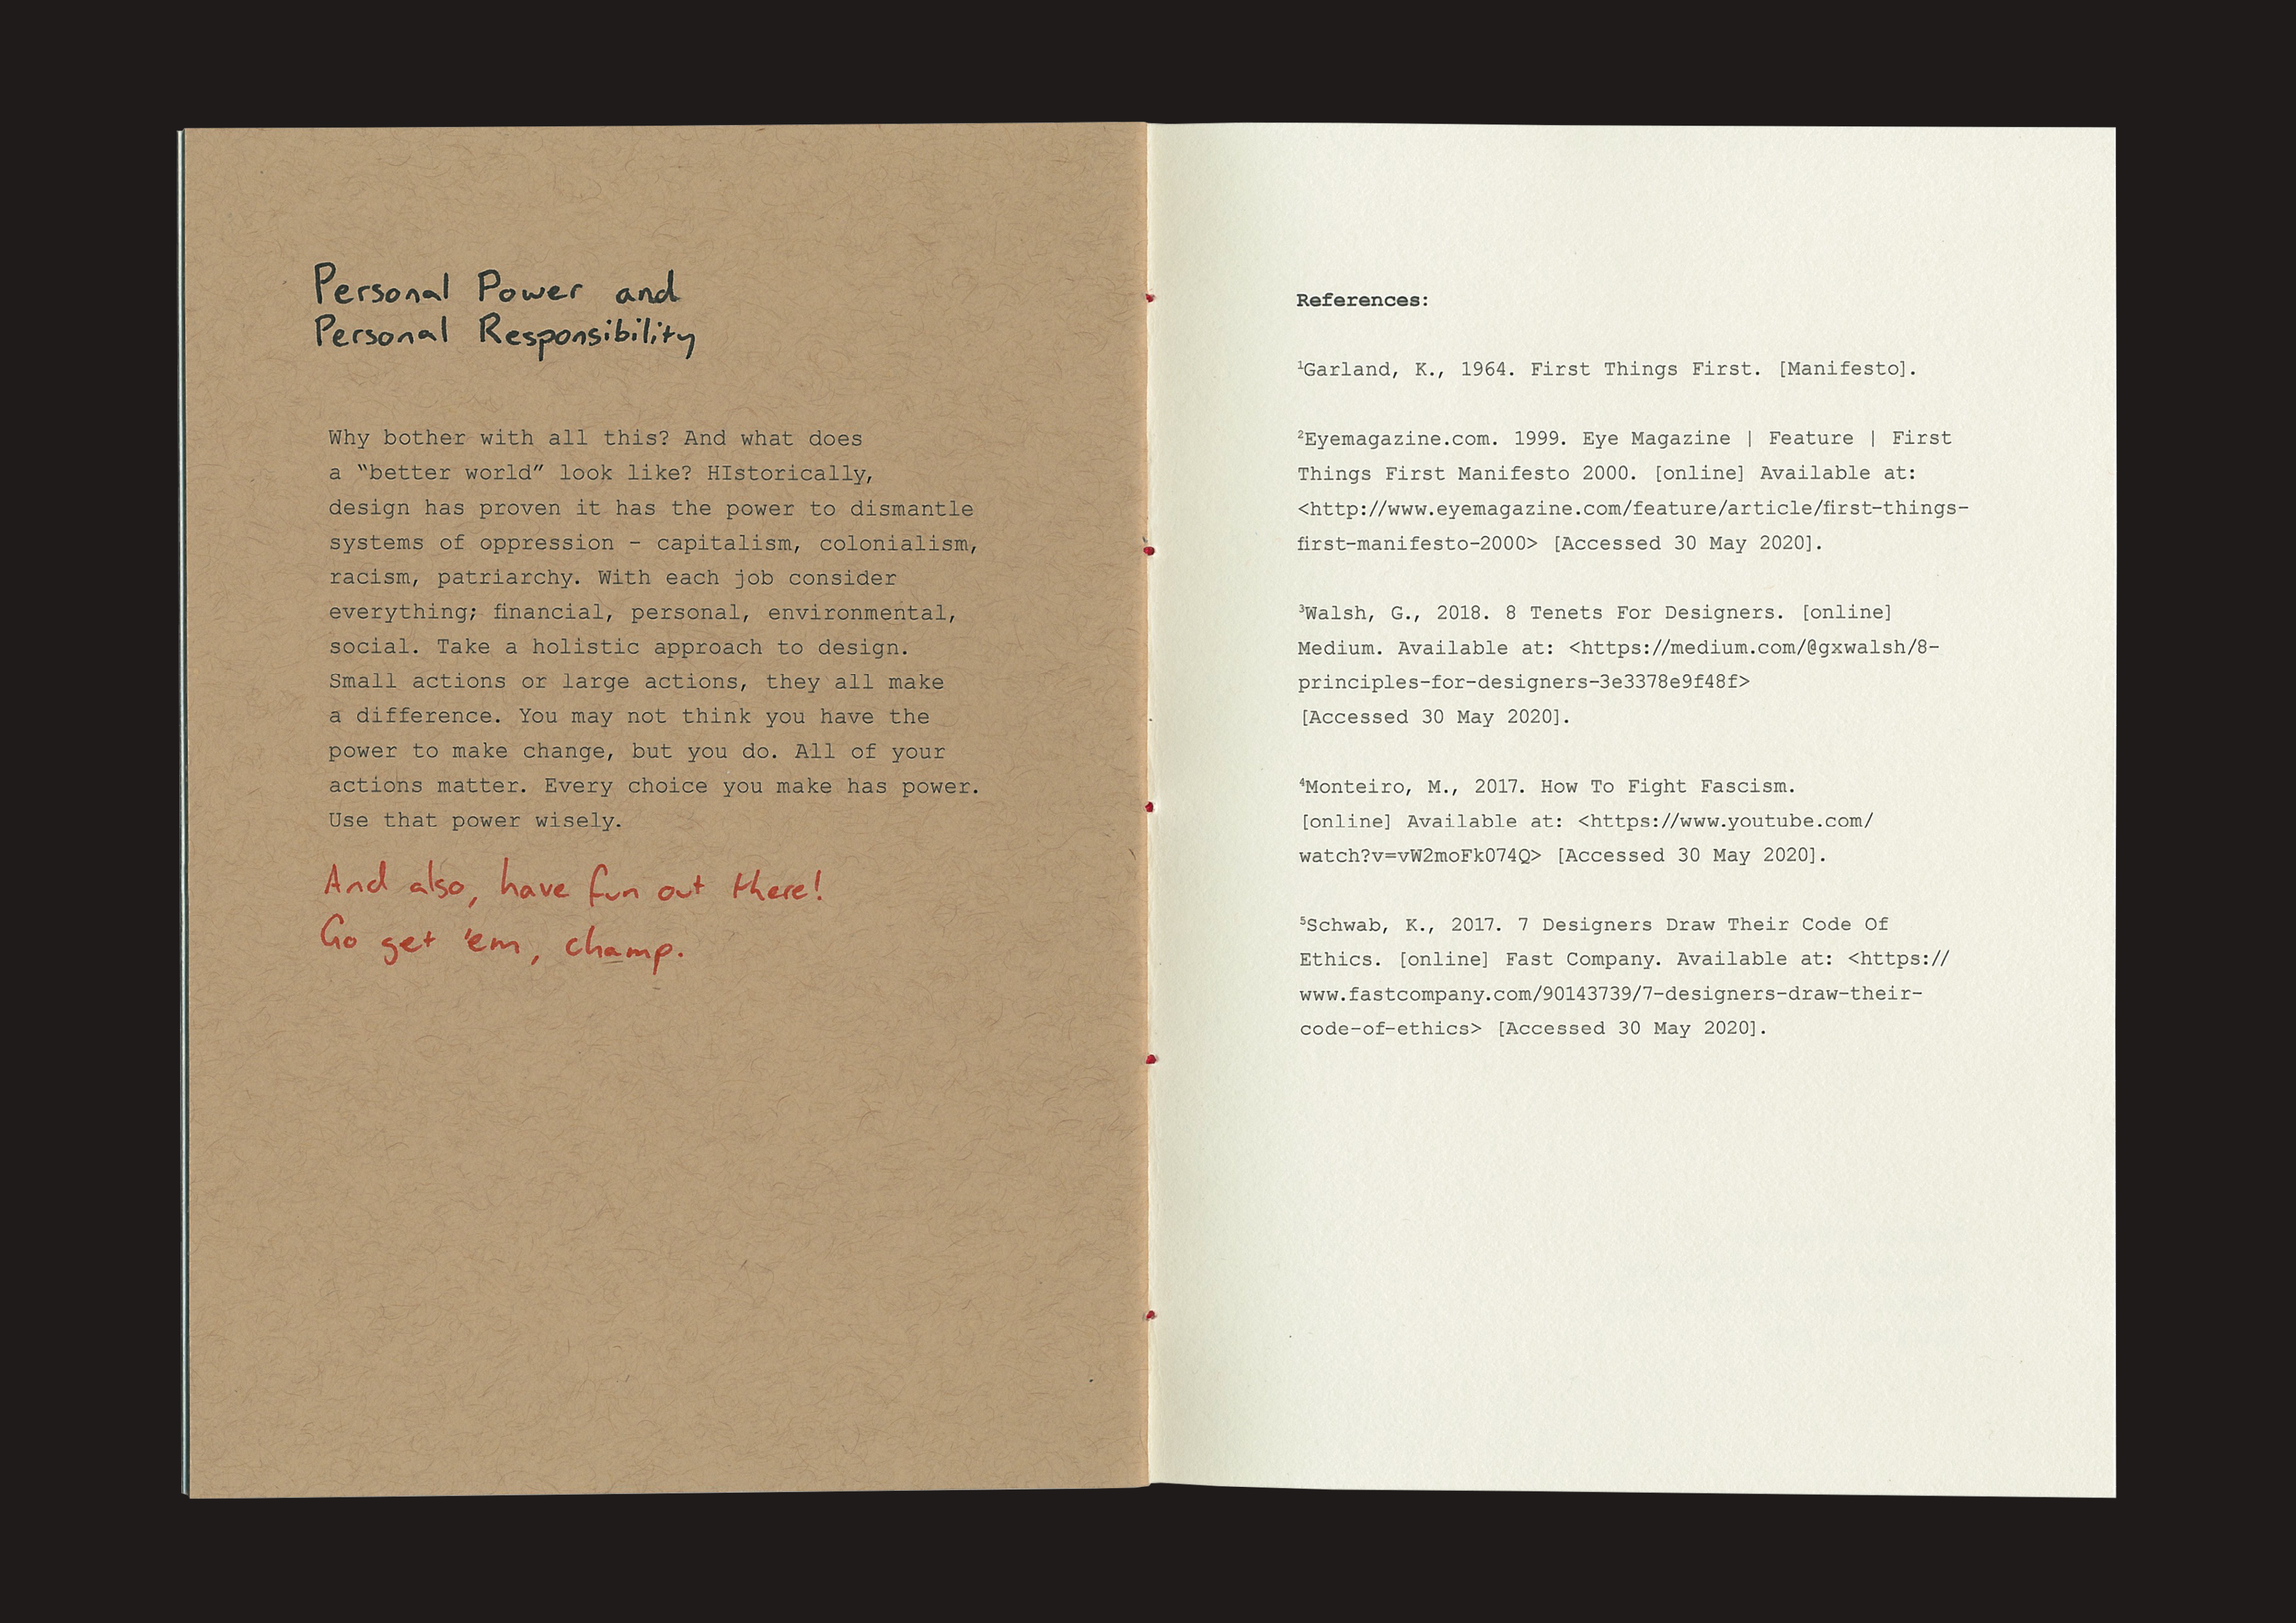 Personal Power and
Personal Responsibility
Why bother with all this? And what does
a “better world” look like? HIstorically,
design has proven it has the power to dismantle
systems of oppression – capitalism, colonialism,
racism, patriarchy. With each job consider
everything; financial, personal, environmental,
social. Take a holistic approach to design.
Small actions or large actions, they all make
a difference. You may not think you have the
power to make change, but you do. All of your
actions matter. Every choice you make has power.
Use that power wisely.
And also, have fun out there!
Go get 'em, champ.
References:
¹Garland, K., 1964. First Things First. [Manifesto].
²Eyemagazine.com. 1999. Eye Magazine | Feature | First
Things First Manifesto 2000. [online] Available at:
<http://www.eyemagazine.com/feature/article/first-things-
first-manifesto-2000> [Accessed 30 May 2020].
³Walsh, G., 2018. 8 Tenets For Designers. [online]
Medium. Available at: <https://medium.com/@gxwalsh/8-
principles-for-designers-3e3378e9f48f>
[Accessed 30 May 2020].
⁴Monteiro, M., 2017. How To Fight Fascism.
[online] Available at: <https://www.youtube.com/
watch?v=vW2moFk074Q> [Accessed 30 May 2020].
⁵Schwab, K., 2017. 7 Designers Draw Their Code Of
Ethics. [online] Fast Company. Available at: <https://
www.fastcompany.com/90143739/7-designers-draw-their-
code-of-ethics> [Accessed 30 May 2020].